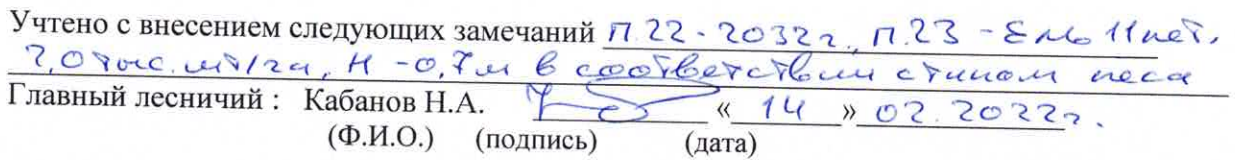 Учтено с внесением следующих замечаний п.22 - 2032г., п.23 - Ель 11лет,
2,0 тыс. шт/га, Н - 0,7м в соответствии с типом леса
Главный лесничий : Кабанов Н.А. « 14 » 02. 2022г.
(Ф.И.О.) (подпись) (дата)